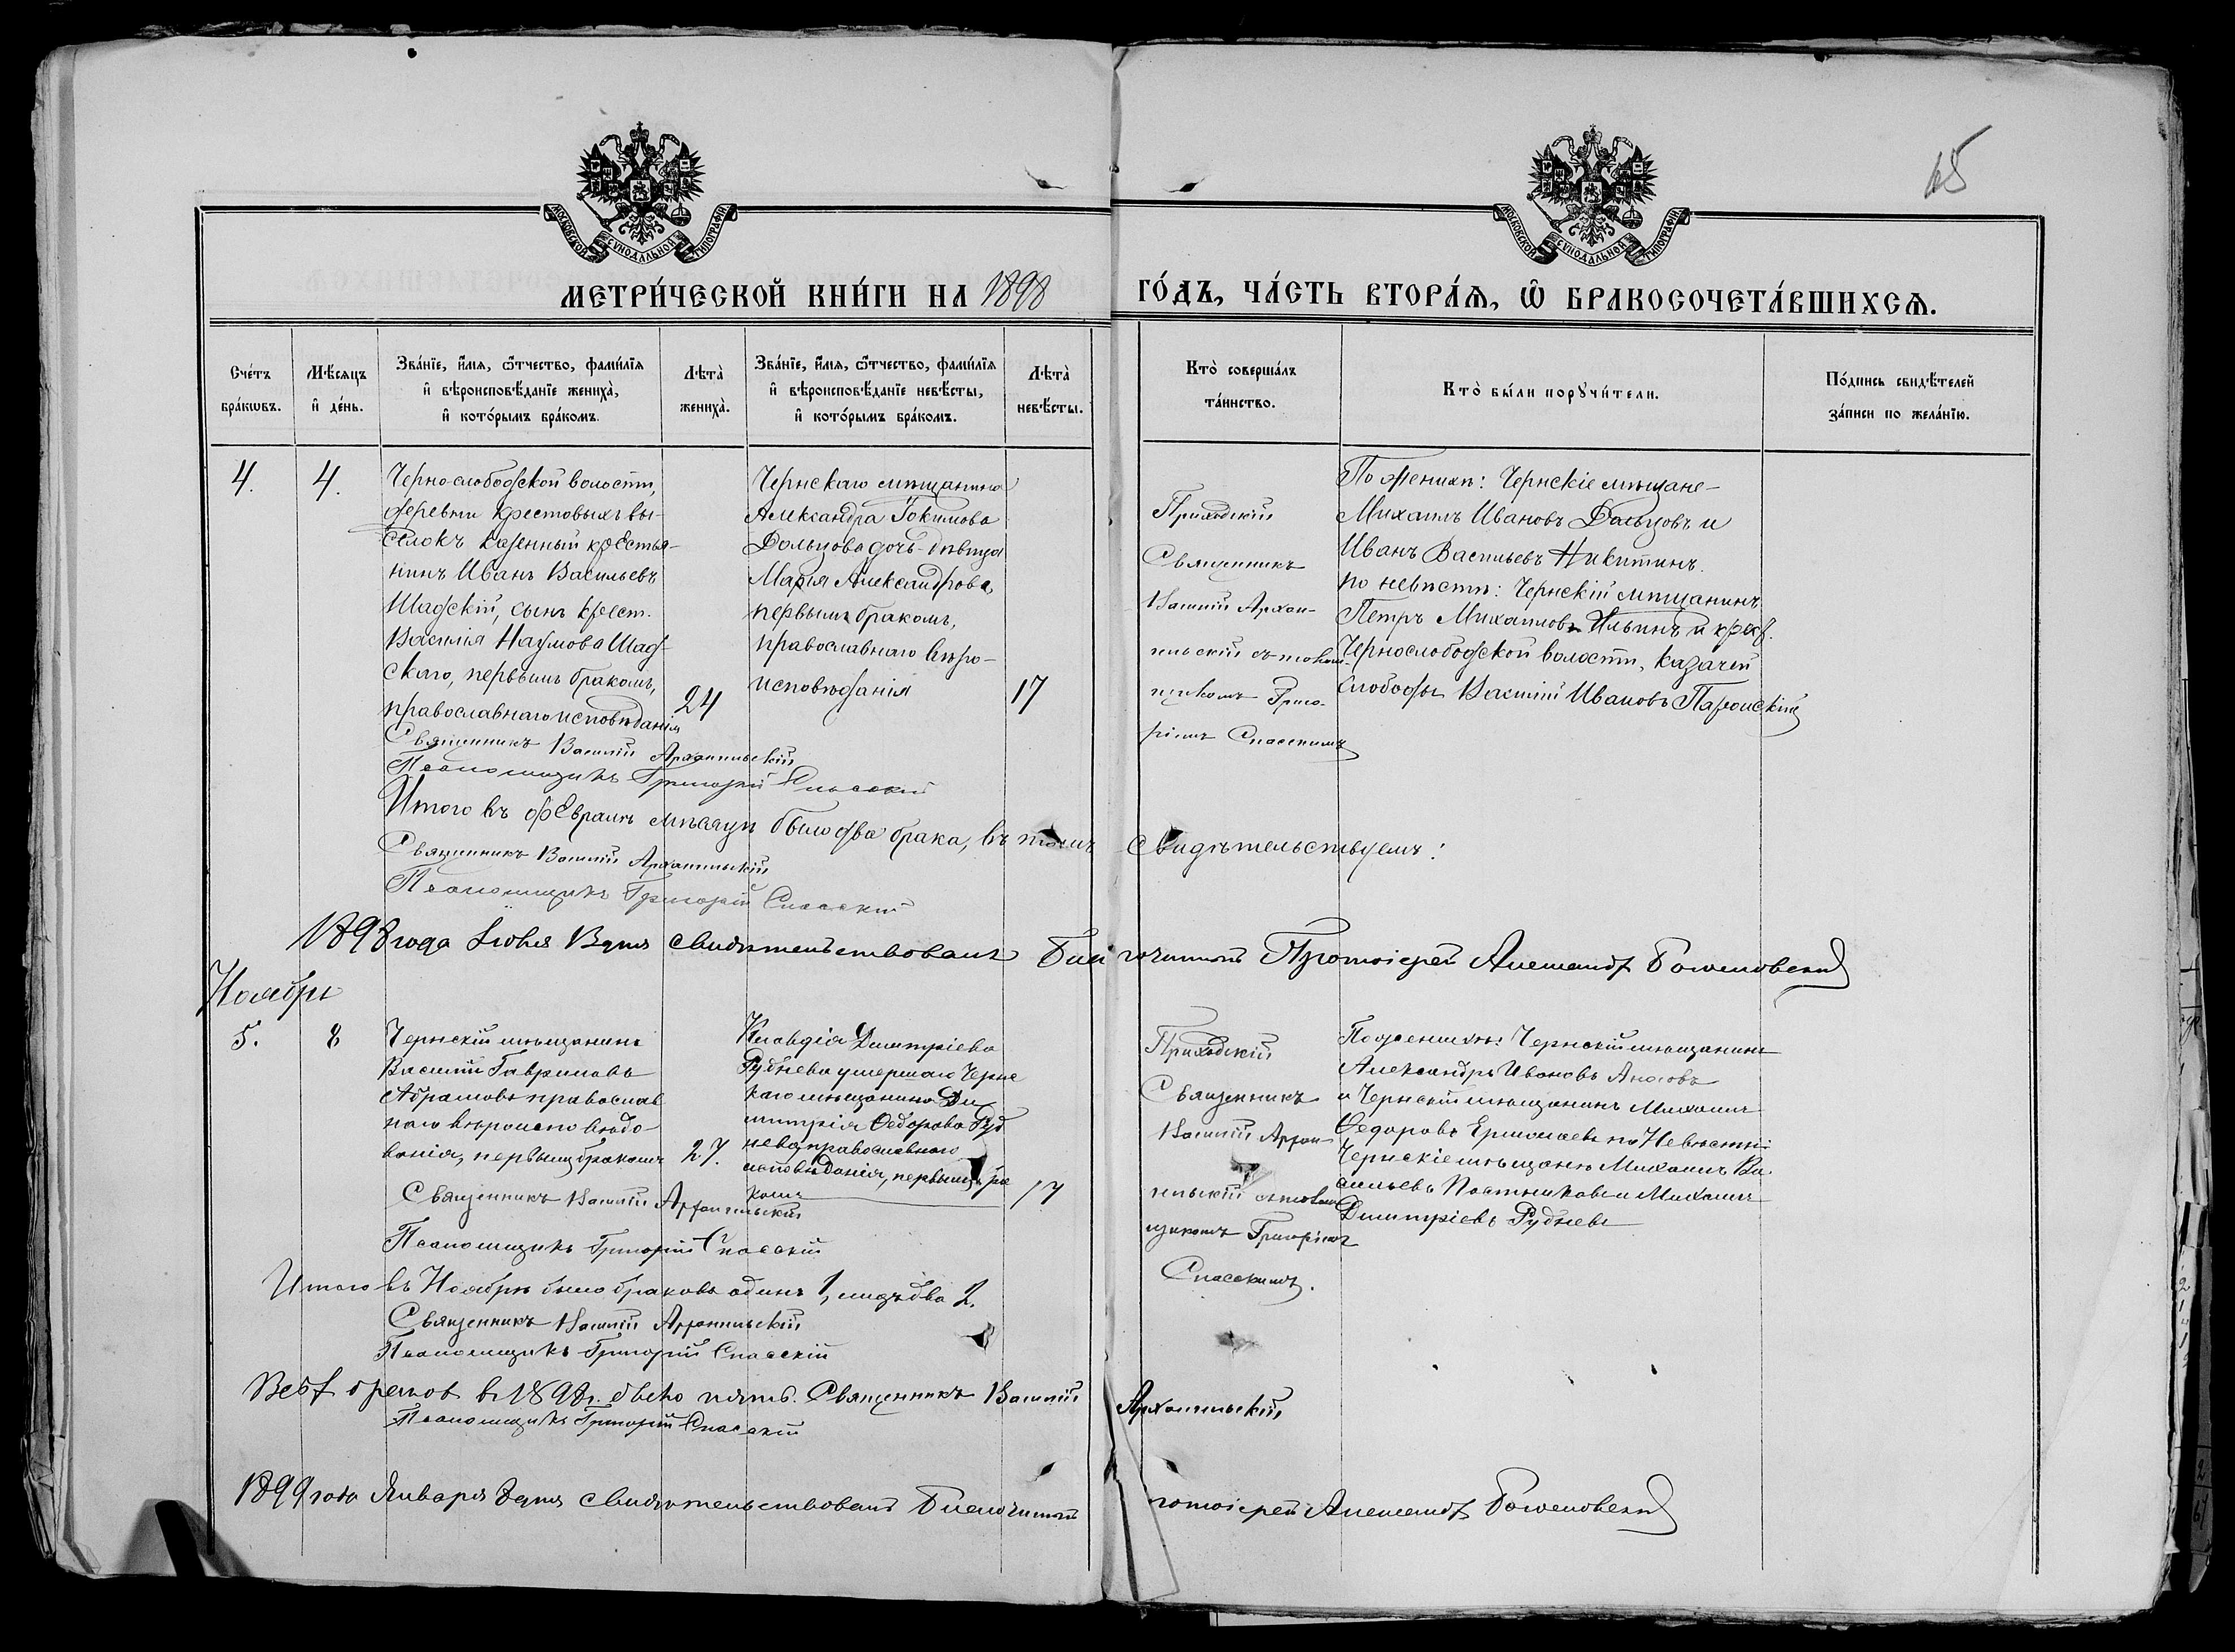 65
МОСКОВСКОЙ СѴНОДАЛЬНОЙ ТИПОГРАФІИ
МОСКОВСКОЙ СѴНОДАЛЬНОЙ ТИПОГРАФІИ
МЕТРИ́ЧЕСКОЙ КНИ́ГИ НА 1898 ГО́ДЪ, ЧА́СТЬ ВТОРА́Ѧ, Ѿ БРАКОСОЧЕТА́ВШИХСѦ.
Сче́тъ
бра́кѡвъ.
Мѣ́сяцъ
и҆ де́нь.
Зва́нїе, и҆́мя, ѻ҆́тчество, фами́лїя
и҆ вѣроисповѣ́данїе жениха̀,
и҆ кото́рымъ бра́комъ.
Лѣта̀
жениха̀.
Зва́нїе, и҆́мя, ѻ҆́тчество, фами́лїя
и҆ вѣроисповѣ́данїе невѣ́сты,
и҆ кото́рымъ бра́комъ.
Лѣта̀
невѣ́сты.
Кто̀ соверша́лъ
та́инство.
Кто̀ бы́ли порꙋчи́тели.
По́дпись свидѣ́телей
за́писи по жела́нїю.
4.
4.
Чернослободской волости,
деревни Крестовыхъ вы-
селокъ казенный крестья-
нинъ Иванъ Васильевъ
Шадскій, сынъ крест.
Василія Наумова Шад-
скаго, первымъ бракомъ,
православнаго исповѣданія
24
Чернскаго мѣщанина
Александра Іокимова
Дольцова дочь-дѣвица
Марія Александрова,
первымъ бракомъ,
православнаго вѣро-
исповѣданія
17
Приходскій
Священникъ
Василій Архан-
гельскій съ псалом-
щикомъ Григо-
ріемъ Спасскимъ
По женихѣ: Чернскіе мѣщане-
Михаилъ Ивановъ Дольцовъ и
Иванъ Васильевъ Никитинъ.
по невѣстѣ: Чернскій мѣщанинъ
Петръ Михаиловъ Ильинъ и крест.
Чернослободской волости, Казачей
слободы Василій Ивановъ
Священникъ Василій Архангельскій
Псаломщикъ Григорій Спасскій
Итого въ Февралѣ мѣсяцѣ было два брака, въ томъ свидѣтельствуемъ:
Священникъ Василій Архангельскій
Псаломщикъ Григорій Спасскій
1898 года Іюля дня свидѣтельствовалъ Благочинный Протоіерей Александръ
Ноябрь
5.
8
Чернскій мѣщанинъ
Василій Гавриловъ
Абрамовъ православ
наго вѣроисповѣда-
ванія, первымъ бракомъ
27.
Клавдія Димитріева
Руднева умершаго Чернс
каго мѣщанина Ди
митрія Ѳедорова Руд
нева православнаго
исповѣданія, первымъ бра
комъ
17
Приходскій
Священникъ
Василій Архан
гельскій съ псалом
щикомъ Григоріемъ
Спасскимъ.
По женихѣ: Чернскій мѣщанинъ
Александръ Ивановъ
и Чернскій мѣщанинъ Михаилъ
Ѳедоровъ Ермолаевъ по Невѣстѣ:
Чернскіе мѣщане Михаилъ Ва-
сильевъ Постниковъ и Михаилъ
Димитріевъ Рудневъ
Священникъ Василій Архангельскій
Псаломщикъ Григорій Спасскій
Итого въ Ноябрѣ было браковъ одинъ 1, лицъ два 2.
Священникъ Василій Архангельскій
Псаломщикъ Григорій Спасскій
Всѣхъ браковъ въ 1898 г. было пять. Священникъ Василій Архангельскій
Псаломщикъ Григорій Спасскій
1899 года Января дня свидѣтельствовалъ Благочинный Протоіерей Александръ